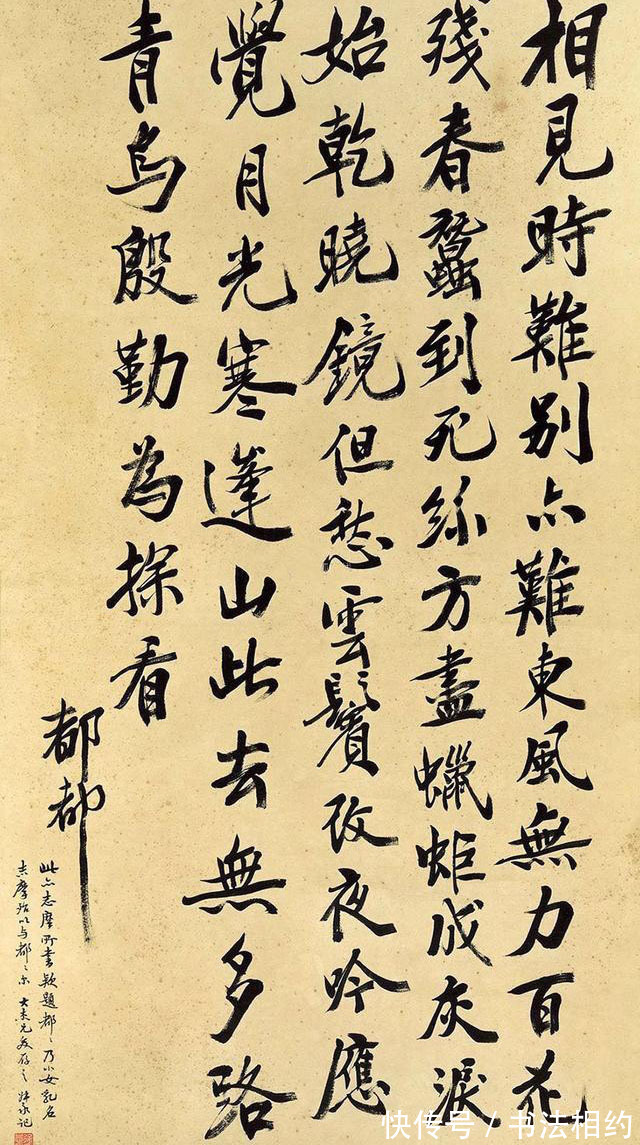 相見時難別亦難東風無力百花
殘春蠶到死絲方盡蠟炬成灰淚
始乾曉鏡但愁雲鬢改夜吟應
覺月光寒蓬山此去無多路
青鳥殷勤為探看
都都
此亦志摩所書欵題都々乃小女乳名
志摩 以与都々尔 大杰兄 存之 记
快传号 / 书法相约